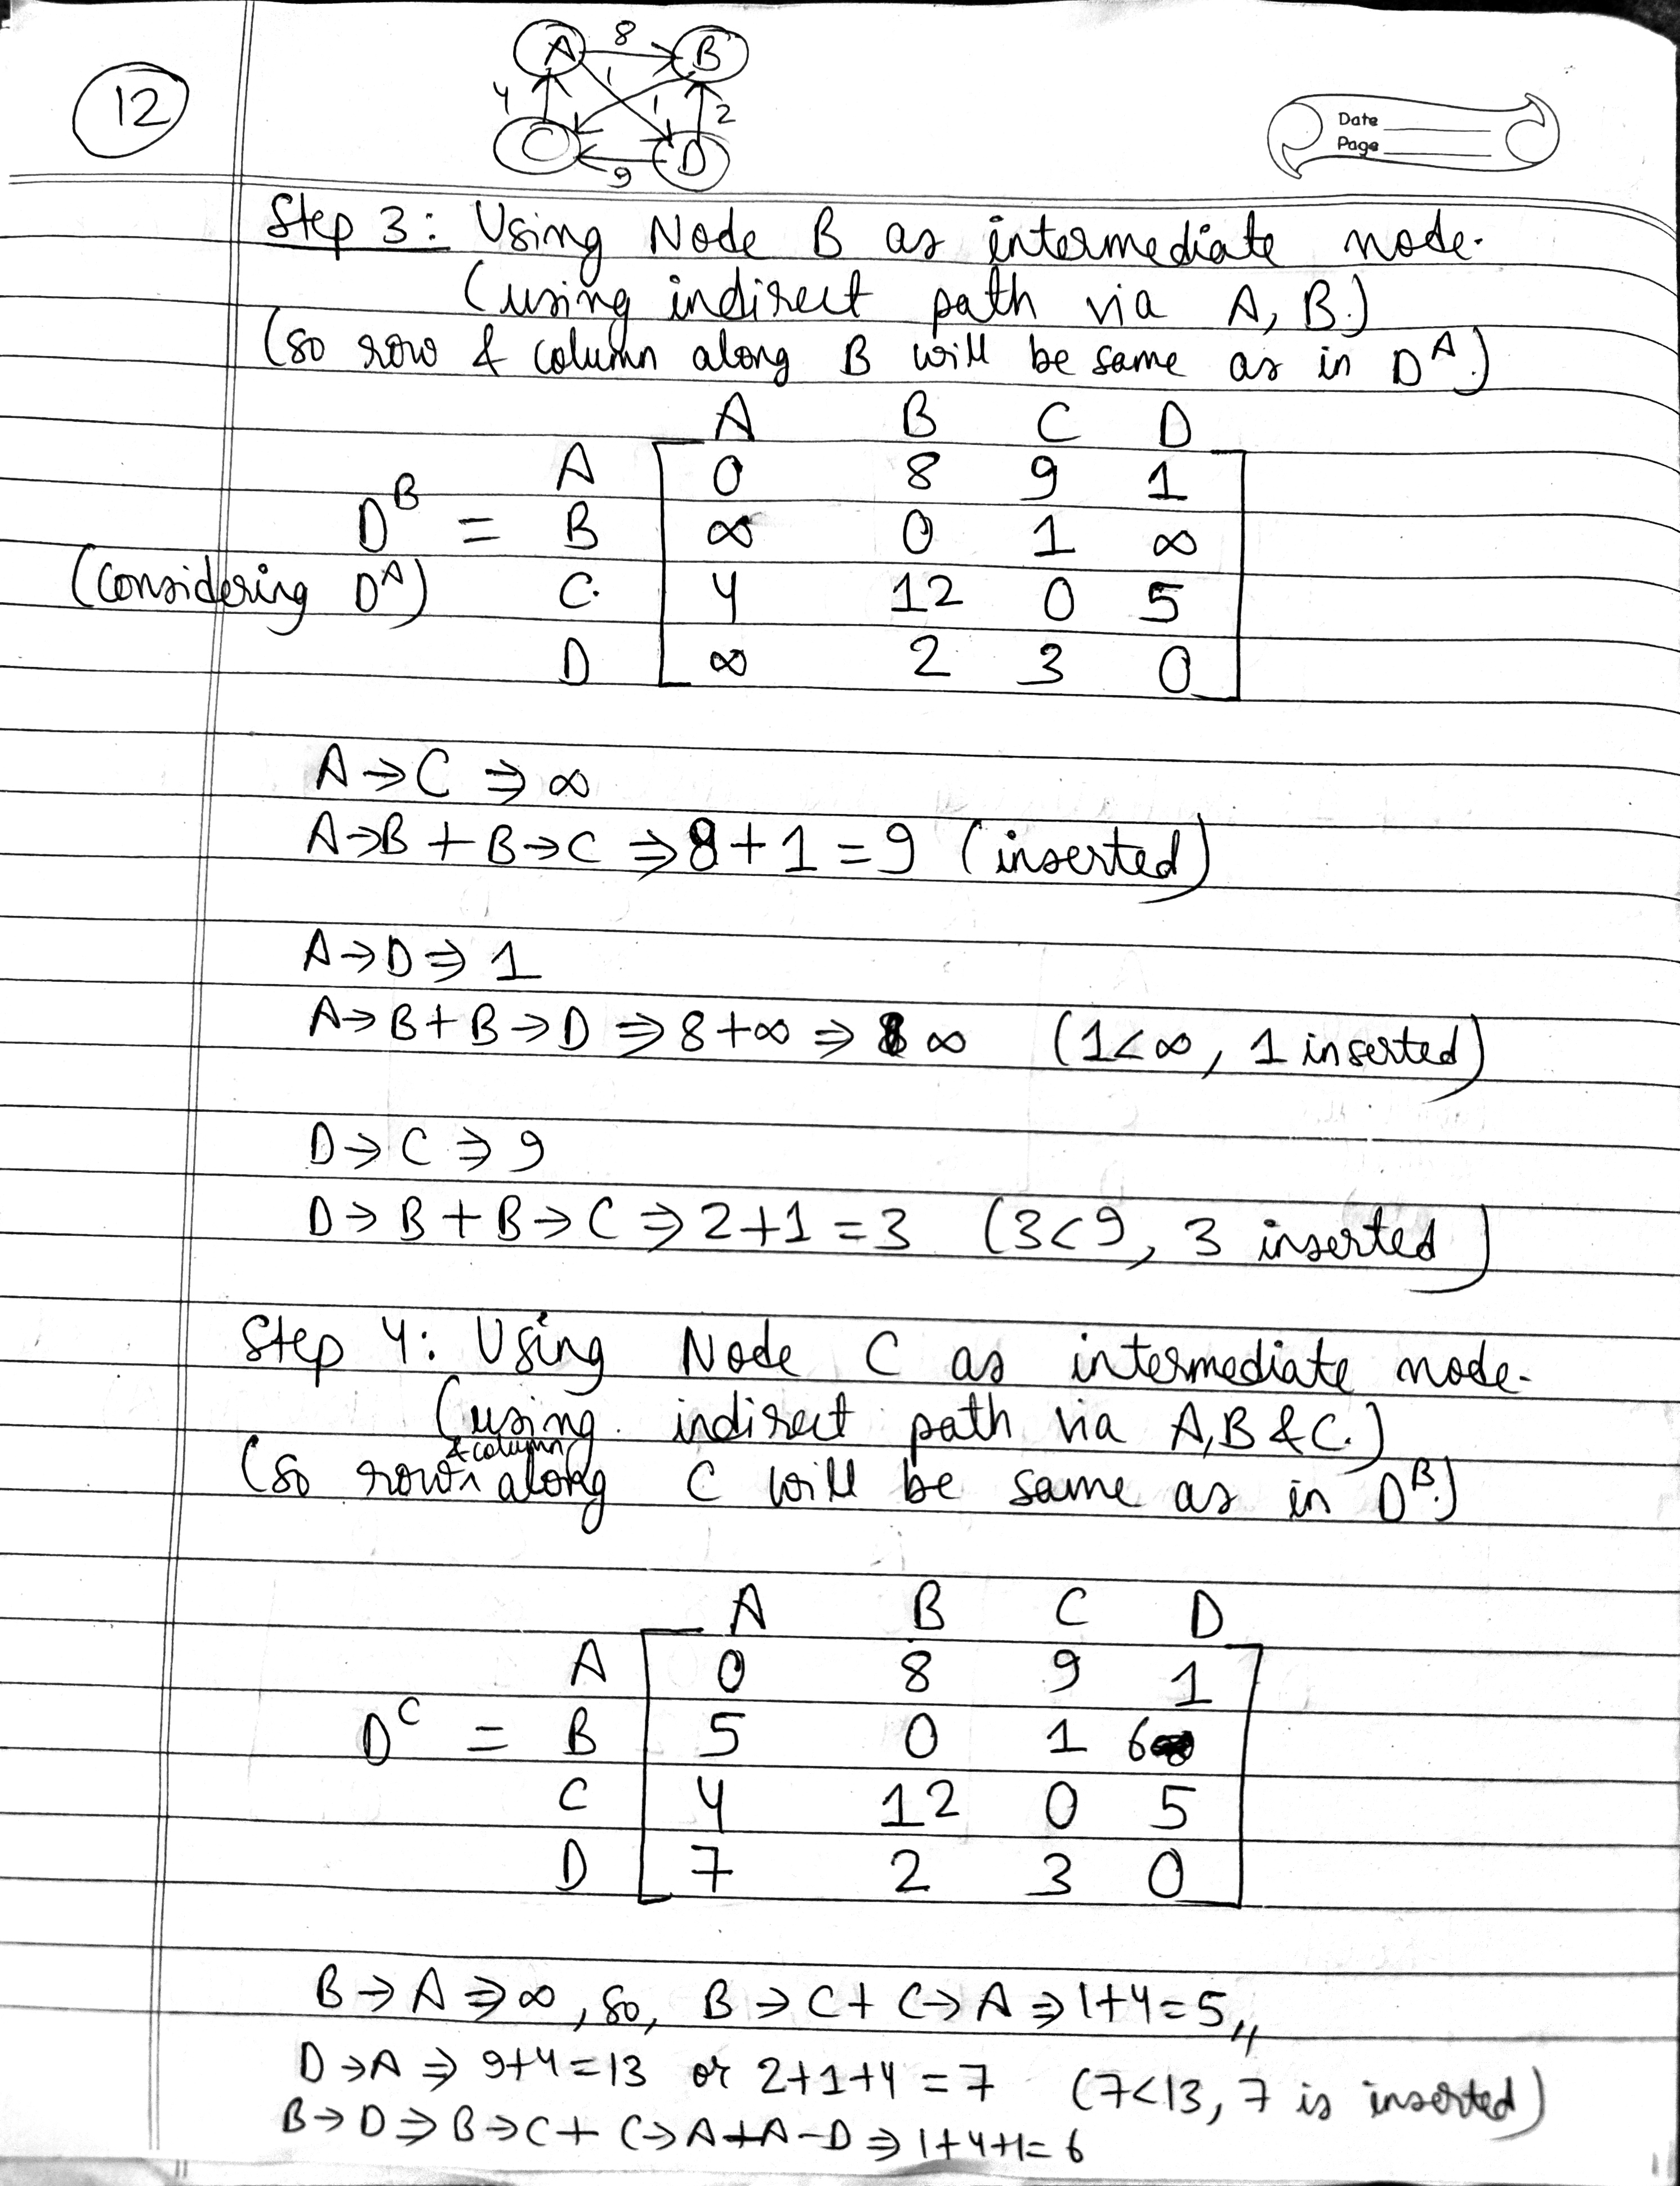 12
A 8 B
4 1 1 2
C 9 D
Date
Page
Step 3: Using Node B as intermediate node.
(using indirect path via A, B.)
(so row & column along B will be same as in D^A.)
A B C D
A 0 8 9 1
D^B = B ∞ 0 1 ∞
(Considering D^A) C. 4 12 0 5
D ∞ 2 3 0
A → C ⇒ ∞
A→B + B→C ⇒ 8+1 = 9 (inserted)
A→D ⇒ 1
A→B + B→D ⇒ 8+∞ ⇒ ∞ (1<∞, 1 inserted)
D→C ⇒ 9
D→B + B→C ⇒ 2+1 = 3 (3<9, 3 inserted)
Step 4: Using Node C as intermediate node.
(using indirect path via A, B & C.)
(so row & column along C will be same as in D^B.)
A B C D
A 0 8 9 1
D^C = B 5 0 1 6
C 4 12 0 5
D 7 2 3 0
B→A ⇒ ∞, so, B→C + C→A ⇒ 1+4=5,,
D→A ⇒ 9+4=13 or 2+1+4 = 7 (7<13, 7 is inserted)
B→D ⇒ B→C + C→A+A-D ⇒ 1+4+1= 6